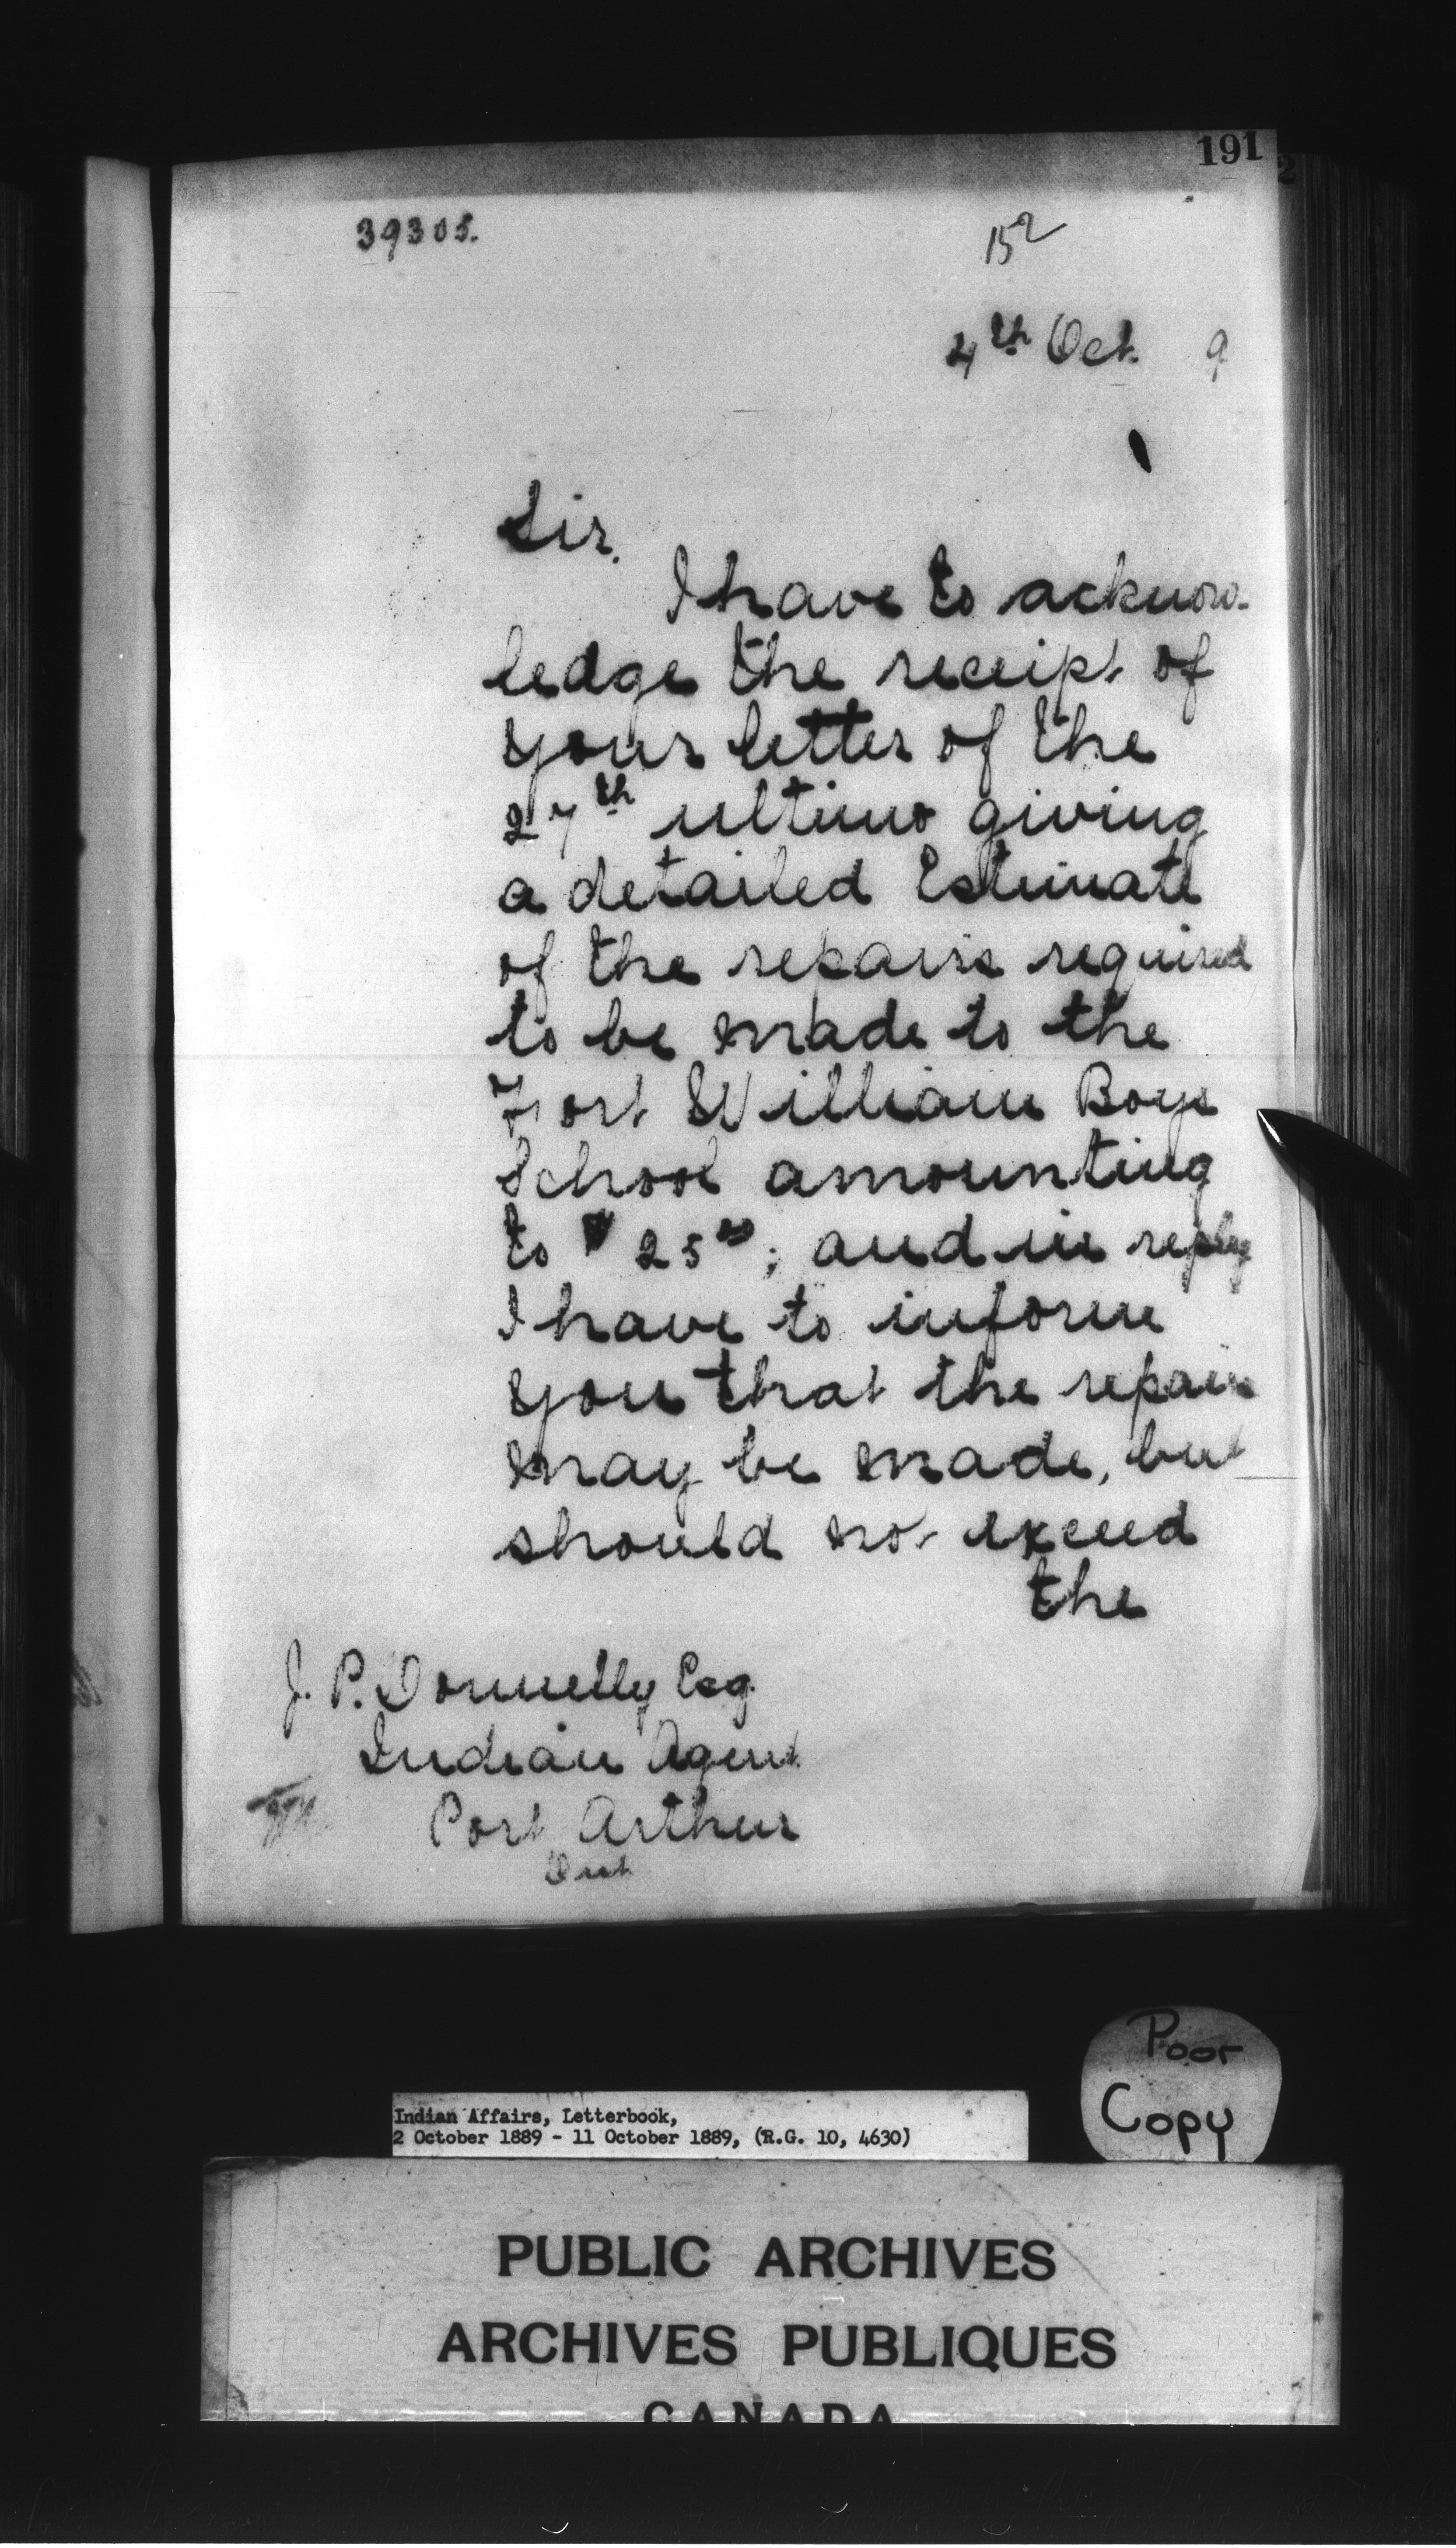 191
39305.
152
4th Oct. 9
Sir,
I have to acknow-
ledge the receipt of
your letter of the
27th ultimo giving
a detailed Estimate
of the repairs required
to be made to the
Fort William Boys
School amounting
to $25.00; and in reply
I have to inform
you that the repairs
may be made, but
should not exceed
the
J. P. Donnelly Esq.
Indian Agent.
Port Arthur
Ont.
Poor
Copy
Indian Affairs, Letterbook,
2 October 1889 - 11 October 1889, (R.G. 10, 4630)
PUBLIC ARCHIVES
ARCHIVES PUBLIQUES
CANADA